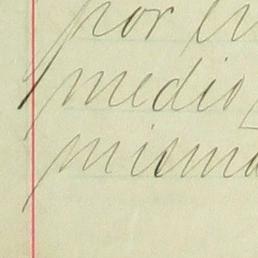 por
medio
misma